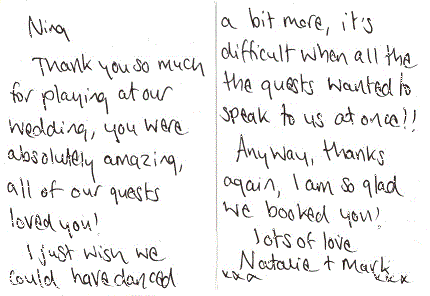 Nina
Thank you so much
for playing at our
wedding, you were
absolutely amazing,
all of our guests
loved you!
I just wish we
could have danced
a bit more, it's
difficult when all the
the guests wanted to
speak to us at once!!
Anyway, thanks
again, I am so glad
we booked you!
lots of love
Natalie + Mark
xxx xxx